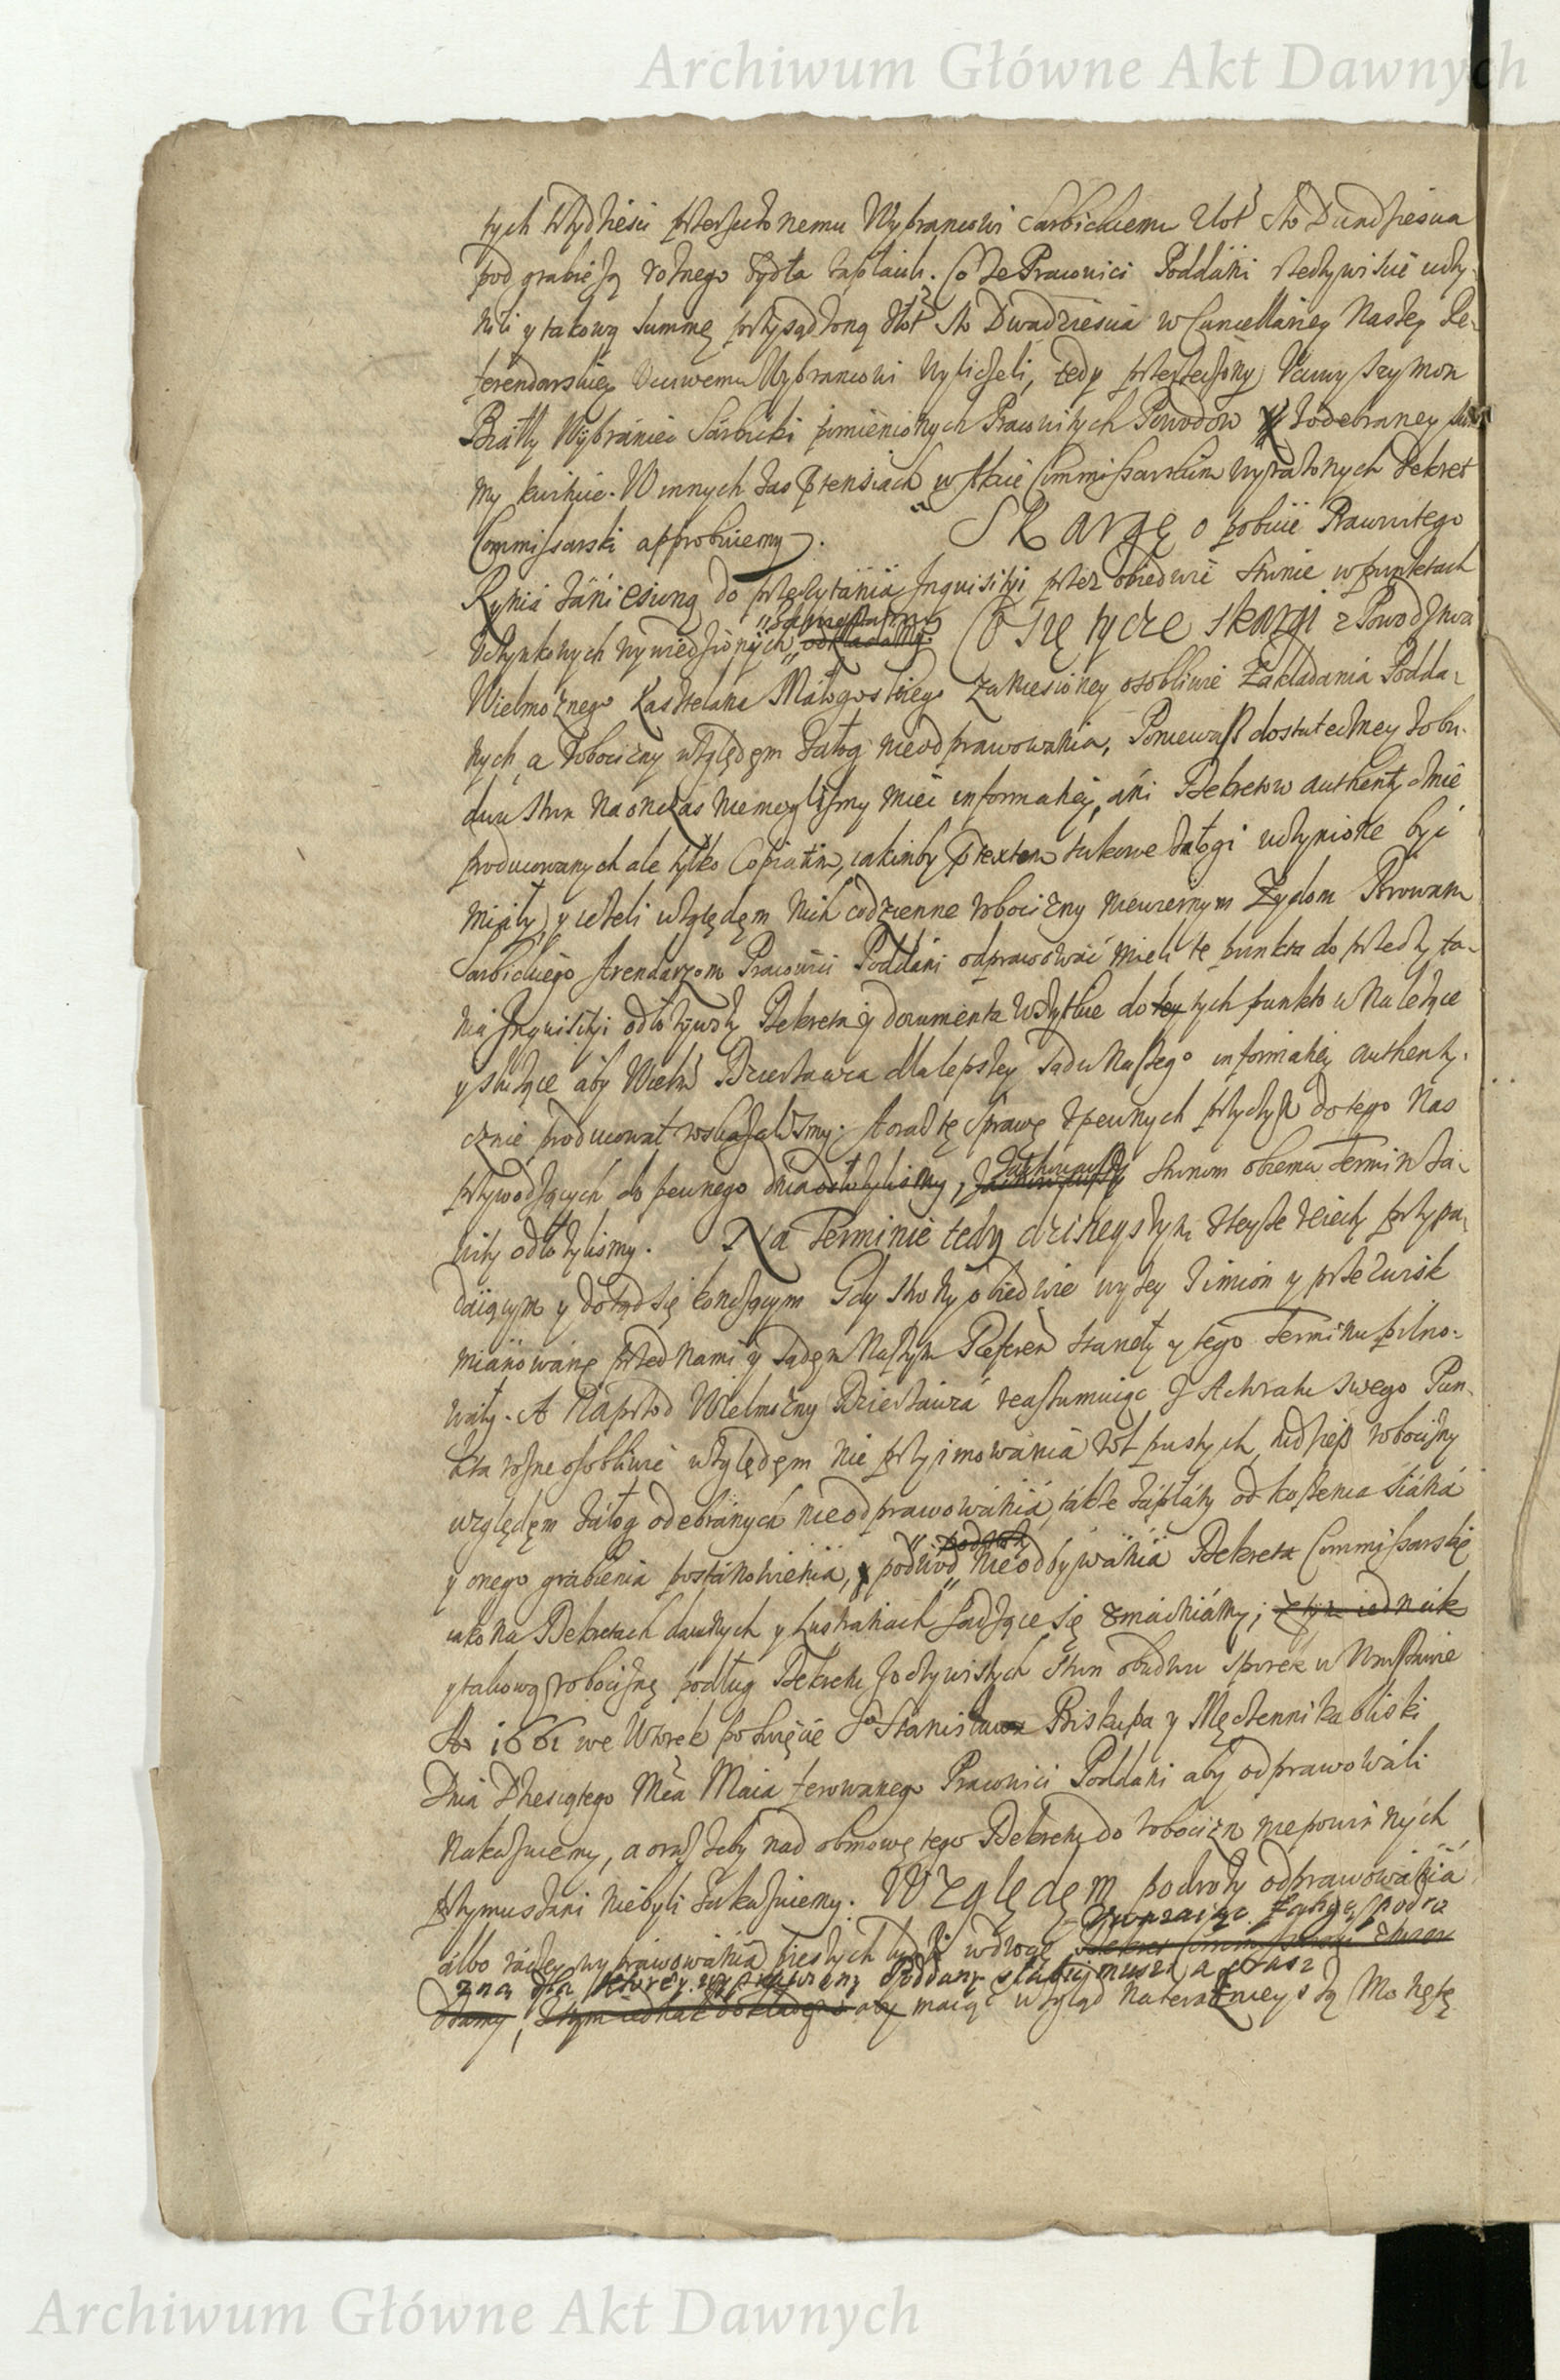 Archiwum Główne Akt Dawnych
tych trzydziesci przerzeczonemu Wybrancowi Sarbickiemu Złot Sto Dwadziescia
pod grabieżą rożnego bydła zapłacili. Co że Pracowici Poddani rzeczywiscie uczy-
nili y takową Summę przysądzoną Złot Sto Dwadziescia w Cancellariey Naszey Re-
ferendarskiey Uczciwemu Wybrancowi wyliczeli, tedy przerzeczony Uczciwy Szymon
Wybraniec Sarbicki pomienionych Pracowitych Powodow z odebraney sum-
my kwituie. W innych zas ptensiach w Akcie Commissarskim wyrażonych Dekret
Commissarski approbuiemy. Skargę o pobicie Pracowitego
zaniesioną do przeczytania Inquisityi przez obiedwie stronie w punktach
uczynkowych wywiedzionych odkładamy. Co się tycze skargi z Powodztwa
Wielmożnego Kasztelana Małogoskiego zaniesioney osobliwie Zakładania Podda-
nych, a robocizny względem załog nieodprawowania, Ponieważ dostateczney z obu-
dwu stron na onczas niemoglismy mieć informatiey, ani Dekretow authentycznie
producowanych ale tylko Copiatim, iakimby ptextem takowe załogi uczynione być
miały, y ieżeli względem nich codzienne robocizny niewiernym Żydom Browaru
Sarbickiego Arendarzom Pracowici Poddani odprawować mieli te punkta do przeczyta-
nia Inquisityi odłożywszy Dekreta y documenta wszytkie do tey tych punktow należące
y służące aby Wielm Dzierżawca dla lepszey Sądu Naszego informatiey authenty-
cznie producował roskazalismy; A oraz tę Sprawę z pewnych przyczyn do tego Nas
przywodzących do pewnego dnia odłożylismy, zachowawszy stronom obiema Termin za-
wity odłożylismy. Na Terminie tedy dzisieyszym z teyże rzeczy przypa-
daiącym y dotąd się konczącym Gdy strony obiedwie wyżey z imion y przezwisk
mianowane przed nami y Sądem Naszym Referen stanęły y tego Terminu pilno-
wały. A Naprzod Wielmożny Dzierżawca reassumuiąc z Attentatu swego Pun-
kta rożne osobliwie względem nie przyimowania rol pustych, tudzież robocizny
względem załog odebranych nieodprawowania, także zapłaty od koszenia siana
y onego grabienia postanowienia, y podwod nieodbywania Dekreta Commissarskie
iako na Dekretach dawnych y Lustratiach sadzące się zmacniamy; z tym iednak
y takową robociznę podług Dekretu Oczywistych stron obudwu sporek w Warszawie
Ao 1661 we Wtorek po święcie So Stanisława Biskupa y Męczennika bliski
Dnia Dziesiątego Mca Maia ferowanego Pracowici Poddani aby odprawowali
nakazuiemy, a oraz żeby nad obmowę tego Dekretu do robocizn niepowinnych
przymuszani niebyli zakazuiemy. Względem podroży odprawowania
albo raczey wyprawowania pieszych ludzi w drogę
maiąc wzgląd na teraznieyszą Monetę
Archiwum Główne Akt Dawnych